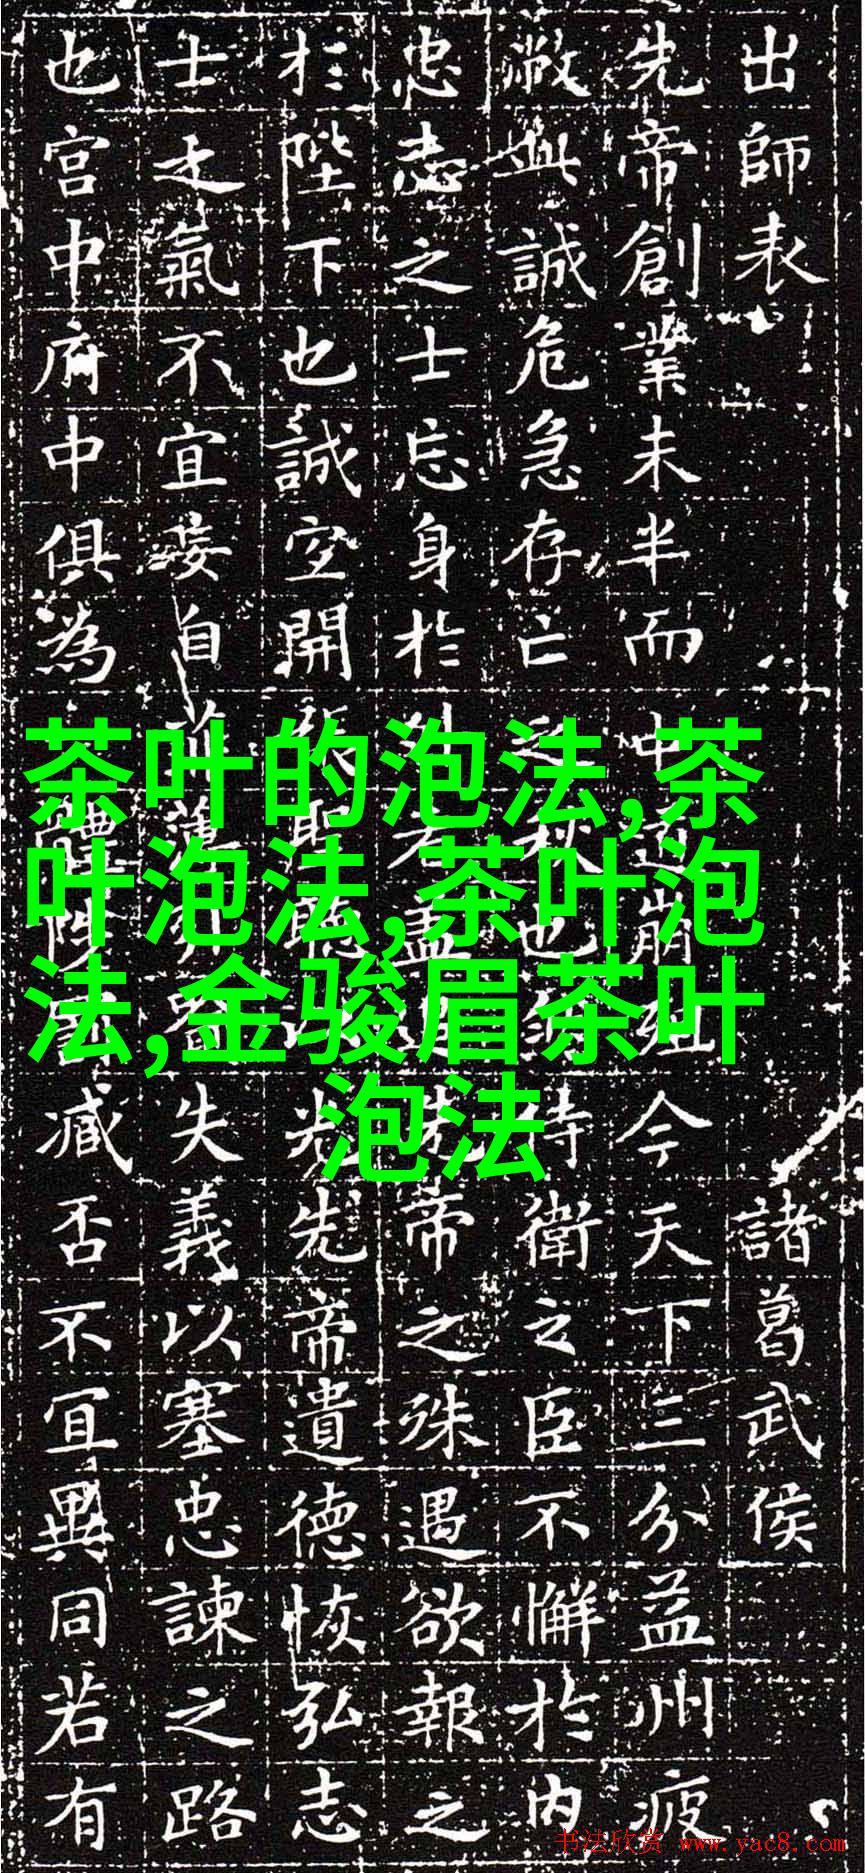 出師表 諸葛武侯
先帝創業未半而中道崩殂今天下三分益州疲
敝此誠危急存亡之秋也侍衛之臣不懈於內
忠志之士忘身於外者蓋追先帝之殊遇欲報之
於陛下也誠宜開張聽光先帝遺德恢弘志
士之氣不宜妄自菲薄引失義以塞忠諫之路
也宮中府中俱為體陟臧否不宜異同若有
茶叶的泡法,茶
叶泡法,茶叶泡
法,金骏眉茶叶
泡法
书法欣赏 www.yac8.com